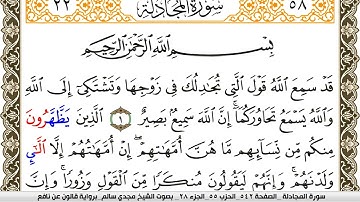 ٥٨ سُورَةُ المُجَادلَة ٢٢
بِسْمِ اللَّهِ الرَّحْمَٰنِ الرَّحِيمِ
قَدْ سَمِعَ اَللَّهُ قَوْلَ اَلتِے تُجَٰدِلُكَ فِے زَوْجِهَا وَتَشْتَكِےٓ إِلَى اَللَّهِ
وَاللَّهُ يَسْمَعُ تَحَاوُرَكُمَآ إِنَّ اَللَّهَ سَمِيعُۢ بَصِيرٌ ١ اَلذِينَ يَظَّهَّرُونَ
مِنكُم مِّن نِّسَآئِهِم مَّا هُنَّ أُمَّهَٰتِهِمُۥٓ إِنْ أُمَّهَٰتُهُمُۥٓ إِلَّا اَلَّٰٓءِے
وَلَدْنَهُمْ وَإِنَّهُمْ لَيَقُولُونَ مُنكَراٗ مِّنَ اَلْقَوْلِ وَزُوراٗ وَإِنَّ
سورة المجادلة _ الصفحة ٥٤٢ _ الحزب ٥٥ _ الجزء ٢٨ _ بصوت الشيخ مجدي سالم _ برواية قالون عن نافع